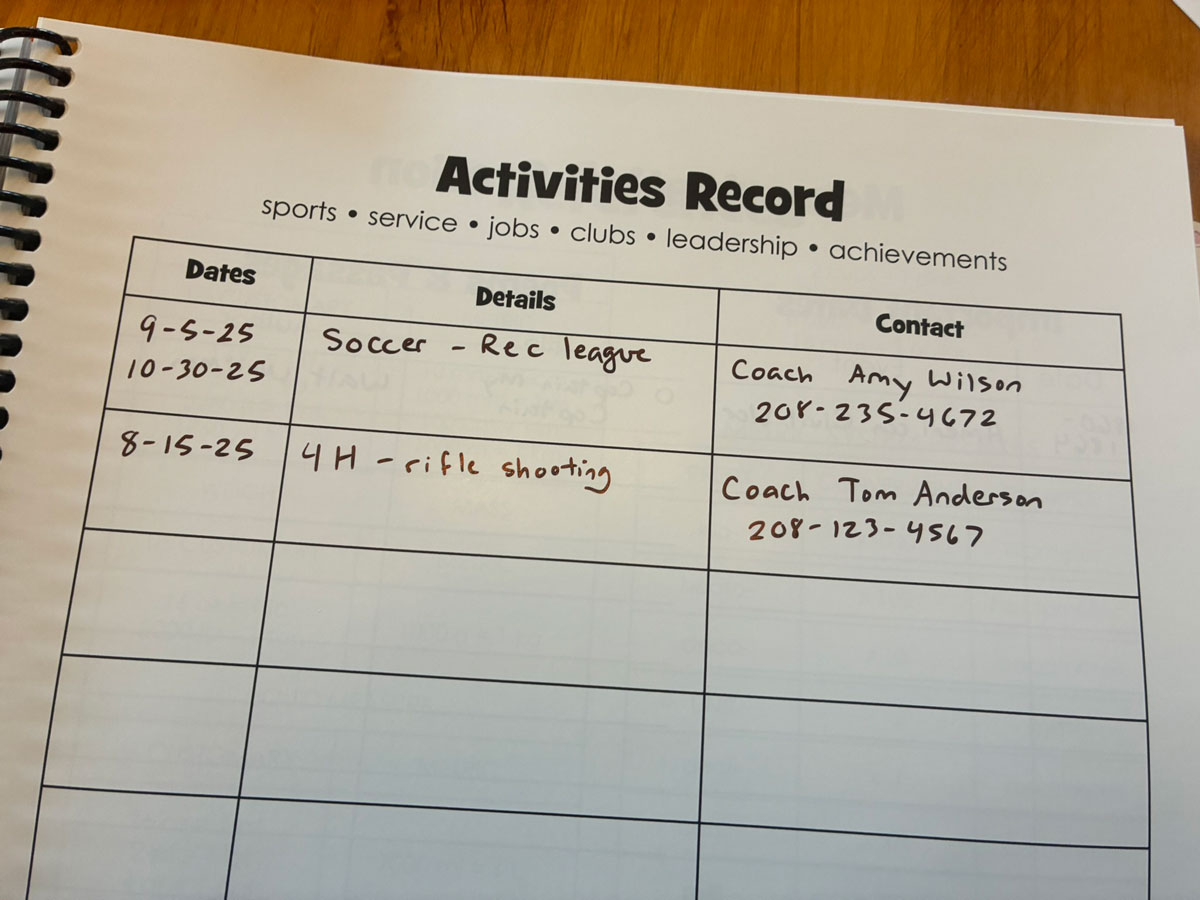 Activities Record
sports • service • jobs • clubs • leadership • achievements
Dates Details Contact
9-5-25 Soccer - Rec league Coach Amy Wilson
10-30-25 208-235-4672
8-15-25 4H - rifle shooting Coach Tom Anderson
208-123-4567